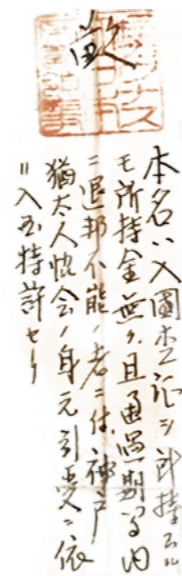 本名ハ入國
モ所持金無ク、且通過期間内
ニ退邦不能ノ者ニ付、神戸
猶太人協会ノ身元引受ニ依
リ入国特許セリ